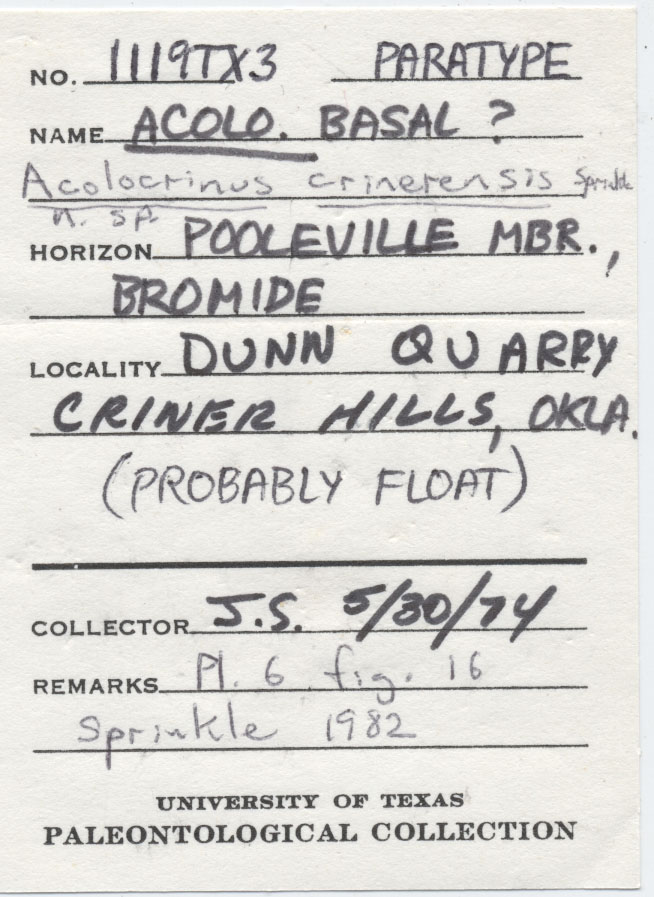 NO. 1119TX3 PARATYPE
NAME ACOLO. BASAL ?
Acolocrinus crinerensis Sprinkle
n. sp.
HORIZON POOLEVILLE MBR.,
BROMIDE
LOCALITY DUNN QUARRY
CRINER HILLS, OKLA.
(PROBABLY FLOAT)
COLLECTOR J.S. 5/30/74
REMARKS Pl. 6 fig. 16
Sprinkle 1982
UNIVERSITY OF TEXAS
PALEONTOLOGICAL COLLECTION